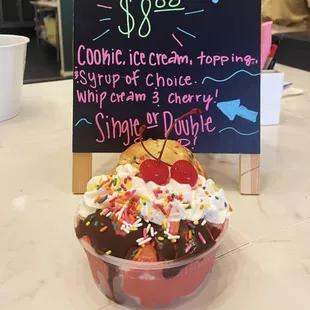 $8.00
Cookie, ice cream, topping,
& Syrup of choice.
Whip cream & cherry!
Single or Double